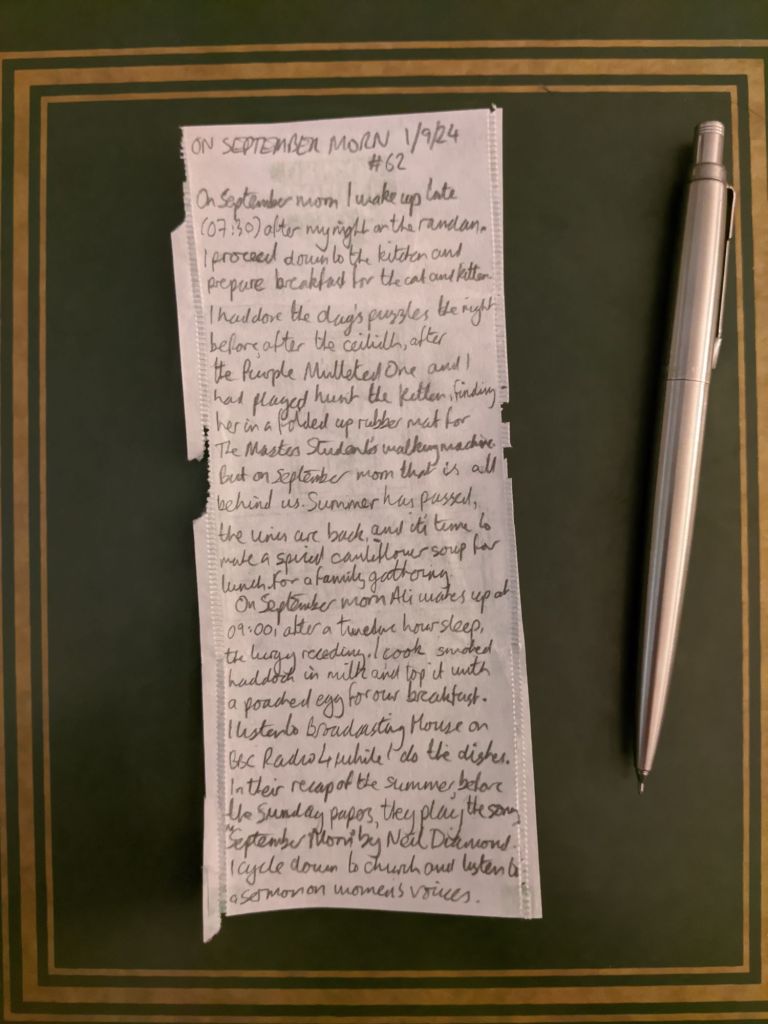 ON SEPTEMBER MORN 1/9/24
#62
On September morn I wake up late
(07:30) after my night on the randan.
I proceed down to the kitchen and
prepare breakfast for the cat and kitten.
I had done the day's puzzles the night
before, after the ceilidh, after
the Purple Mulleted One and I
had played hunt the kitten, finding
her in a folded up rubber mat for
The Masters Student's walking machine.
But on September morn that is all
behind us. Summer has passed,
the unis are back, and it's time to
make a spiced cauliflower soup for
lunch for a family gathering.
On September morn Ali wakes up at
09:00, after a twelve hour sleep,
the lurgy receding. I cook smoked
haddock in milk and top it with
a poached egg for our breakfast.
I listen to Broadcasting House on
BBC Radio 4 while I do the dishes.
In their recap of the summer, before
the Sunday papers, they play the song
"September Morn" by Neil Diamond.
I cycle down to church and listen to
a sermon on women's voices.